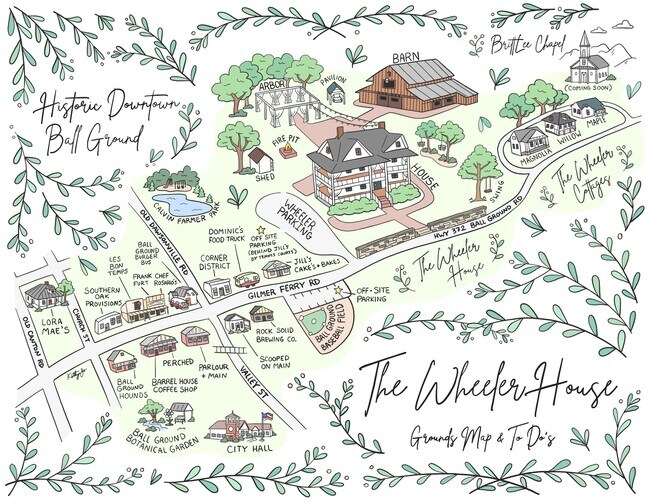 Historic Downtown
Ball Ground
BrittLee Chapel
(COMING SOON)
ARBOR
PAVILION
BARN
FIRE PIT
SHED
HOUSE
SWING
MAGNOLIA
WILLOW
MAPLE
The Wheeler
Cottages
CALVIN FARMER PARK
OLD DAWSONVILLE RD
WHEELER
PARKING
HWY 372 BALL GROUND RD
The Wheeler
House
DOMINIC'S
FOOD TRUCK
OFF SITE
PARKING
(BEHIND JILL'S
BY TENNIS COURTS)
CORNER
DISTRICT
JILL'S
CAKES + BAKES
BALL
GROUND
BURGER
BUS
LES
BON
TEMPS
FRANK CHEF
FURT
ROSARIO'S
SOUTHERN
OAK
PROVISIONS
GILMER FERRY RD
OFF-SITE
PARKING
LORA
MAE'S
OLD CANTON RD
CHURCH ST
BALL GROUND
BASEBALL FIELD
ROCK SOLID
BREWING CO.
SCOOPED
ON MAIN
PERCHED
PARLOUR
+ MAIN
VALLEY ST
BALL
GROUND
HOUNDS
BARREL HOUSE
COFFEE SHOP
BALL GROUND
BOTANICAL GARDEN
CITY HALL
The Wheeler House
Grounds Map & To Do's